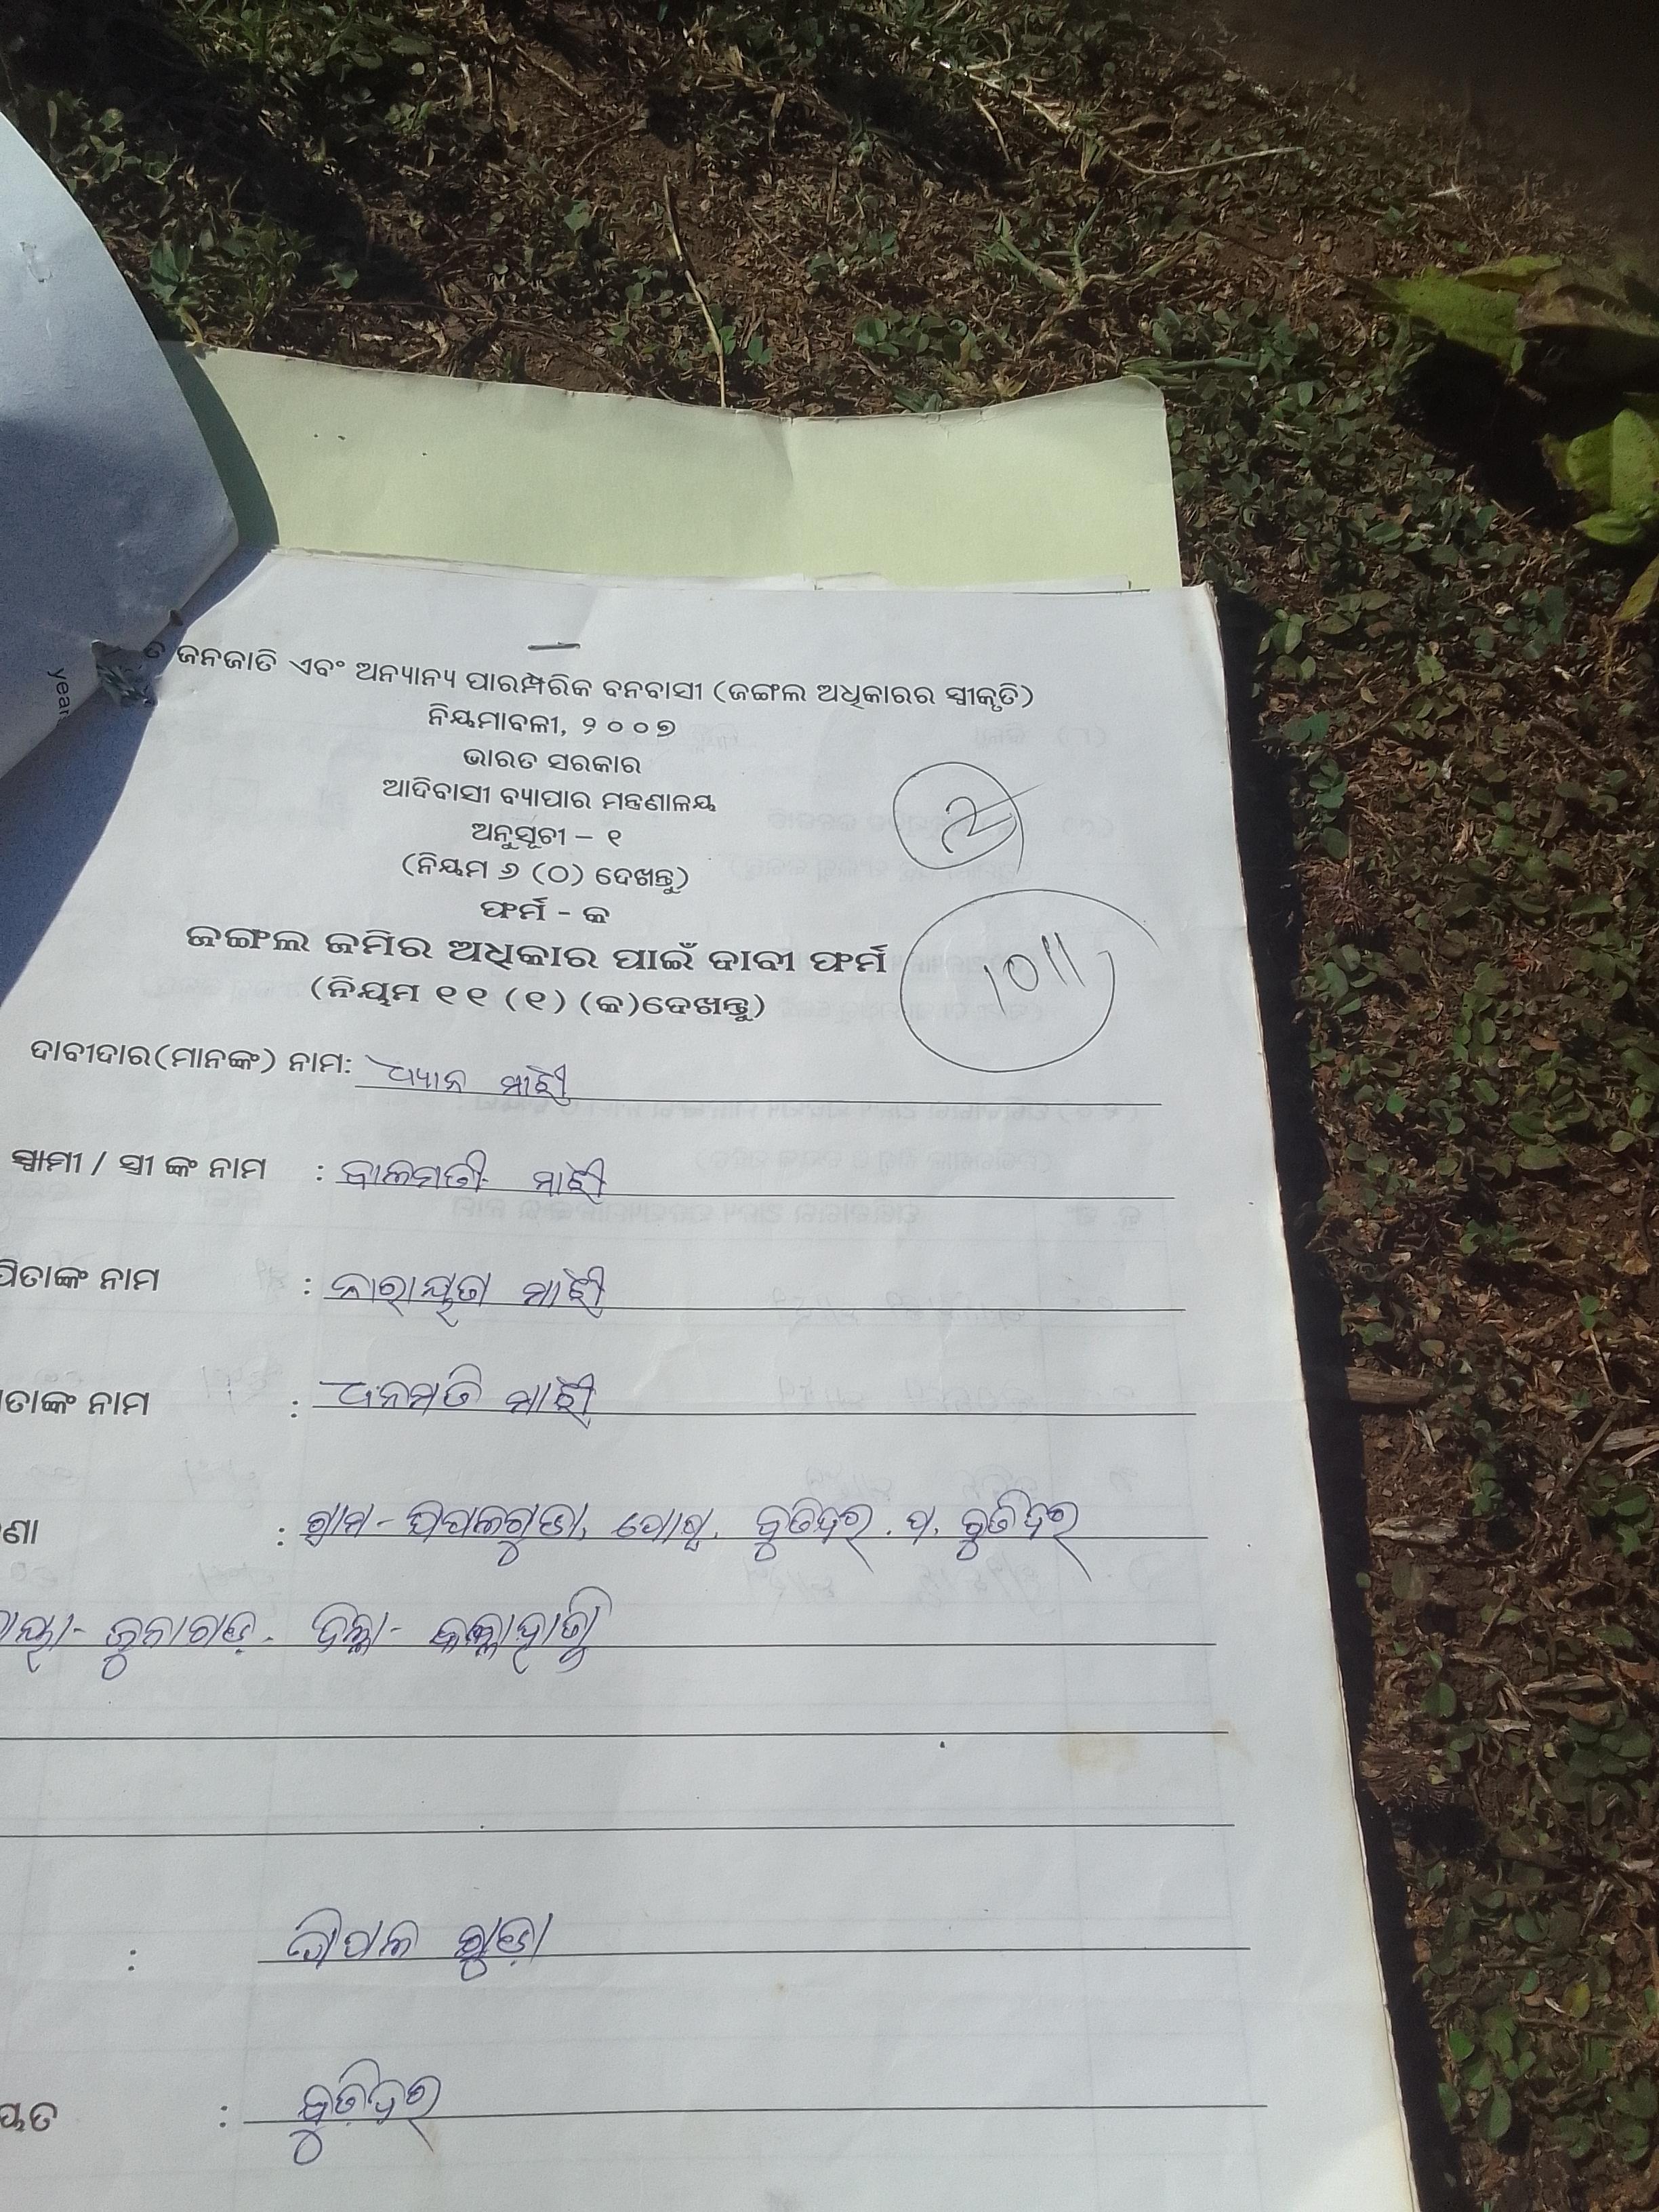 year
ତ ଜନଜାତି ଏବଂ ଅନ୍ୟାନ୍ୟ ପାରମ୍ପରିକ ବନବାସୀ (ଜଙ୍ଗଲ ଅଧିକାରର ସ୍ୱୀକୃତି)
ନିୟମାବଳୀ, ୨୦୦୭
ଭାରତ ସରକାର
ଆଦିବାସୀ ବ୍ୟାପାର ମନ୍ତ୍ରଣାଳୟ
ଅନୁସୂଚୀ – ୧
(ନିୟମ ୬ (୦) ଦେଖନ୍ତୁ)
ଫର୍ମ - କ
ଜଙ୍ଗଲ ଜମିର ଅଧିକାର ପାଇଁ ଦାବୀ ଫର୍ମ
(ନିୟମ ୧୧ (୧) (କ)ଦେଖନ୍ତୁ)
ଦାବୀଦାର(ମାନଙ୍କ) ନାମ: ଧ୍ୟାନ ମାଝୀ
ସ୍ୱାମୀ / ସ୍ତ୍ରୀ ଙ୍କ ନାମ : ବାଳମତୀ ମାଝୀ
ପିତାଙ୍କ ନାମ : ମାଝୀ
ତାଙ୍କ ନାମ : ଧନମତି ମାଝୀ
ଣା : ଗ୍ରାମ - ପିପଲଗୁଡା,
ଜୁନାଗଡ଼. ଜିଲ୍ଲା - କଳାହାଣ୍ଡି
: ପିପଲ ଗୁଡ଼ା
ୟତ :